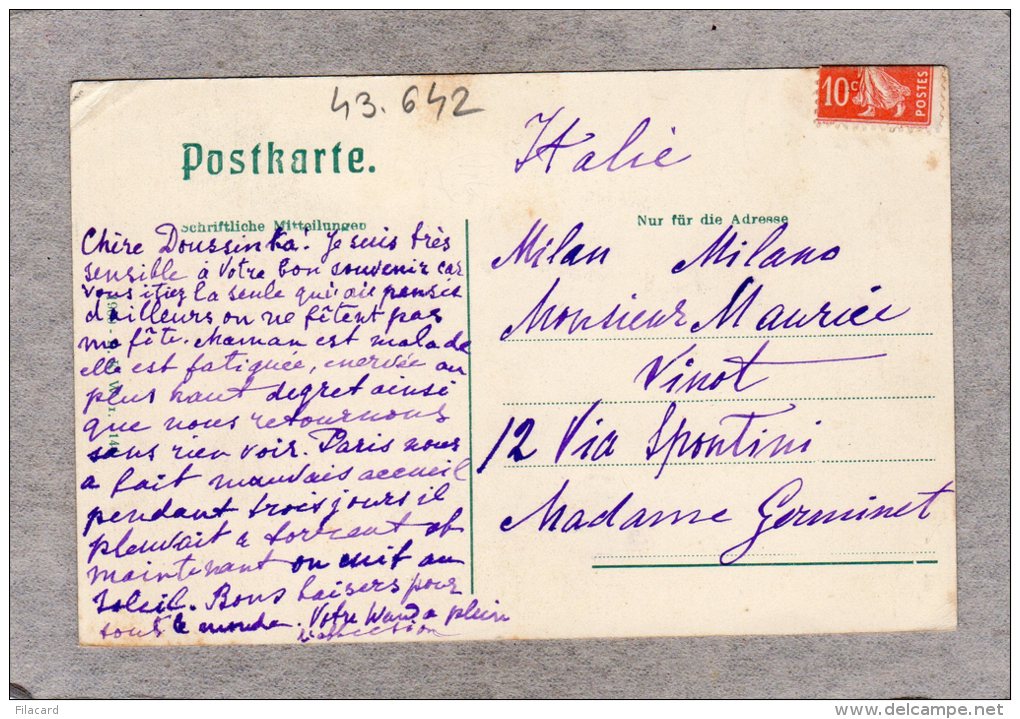 43.642
10c
POSTES
Postkarte.
Italie
Schriftliche Mitteilungen
Nur für die Adresse
Chère Doussinka! Je suis très
sensible à votre bon souvenir car
vous étiez la seule qui aie pensée
d'ailleurs on ne fêtent pas
ma fête. Maman est malade
elle est fatiguée, enervée au
plus haut degret ainsi
que nous retournons
sans rien voir. Paris nous
a fait mauvais accueil
pendant trois jours il
pleuvait a torrent et
maintenant on cuit au
soleil. Bons baisers pour
tout le monde. Votre Wanda plein
d'affection
Milan Milano
Monsieur Maurice
Vinot
12 Via Spontini
Madame Germinet
Filacard
www.delcampe.net